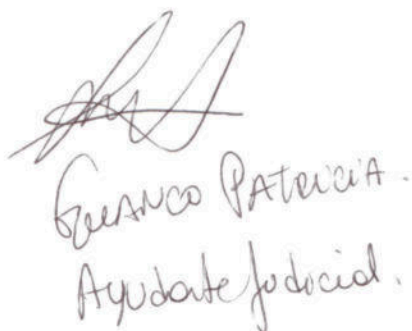 PATRICIA.
Ayudante Judicial.